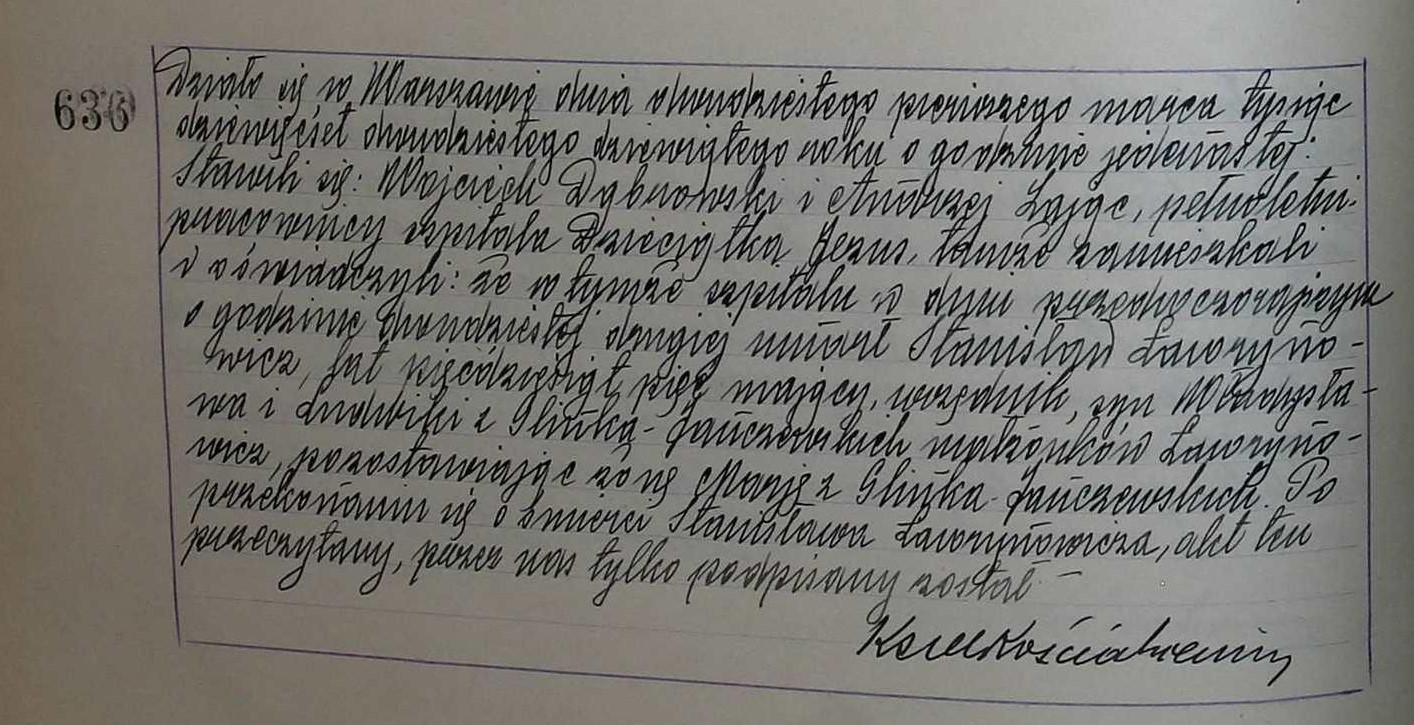 636
Działo się w Warszawie dnia dwudziestego pierwszego marca tysiąc
dziewięćset dwudziestego dziewiątego roku o godzinie jedenastej.
Stawili się: Wojciech Dąbrowski i Andrzej Zając, pełnoletni
pracownicy szpitala Dzieciątka Jezus, tamże zamieszkali
i oświadczyli: że w tymże szpitalu w dniu przedwczorajszym
o godzinie dwudziestej drugiej umarł Stanisław Ławryno-
wicz, lat pięćdziesiąt pięć mający, urzędnik, syn Władysła-
wa i Ludwiki z Glinka-Janczewskich małżonków Ławryno-
wicz, pozostawiając żonę Marję z Glinka-Janczewskich. Po
przekonaniu się o śmierci Stanisława Ławrynowicza, akt ten
przeczytany, przez nas tylko podpisany został